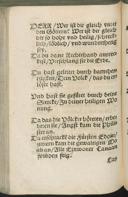 HERR / Wer ist dir gleich unter
den Göttern? Wer ist dir gleich
der so hoch und heilig / schreck-
lich / löblich / und wunderthetig
ist.
Da du deine Rechtehand ausreck-
test / Verschlang sie die Erde.
Du hast geleitet durch barmher-
zigkeit / Dein Volck / das du er-
löset hast.
Und hast sie gefüret durch deine
Stercke / Zu deiner heiligen Wo-
nung.
Da das die Völcker höreten / erbe-
beten sie / Angst kam die Phili-
ster an.
Da erschracken die Fürsten Edom /
zittern kam die gewaltigen
an / Alle Einwoner Canaan